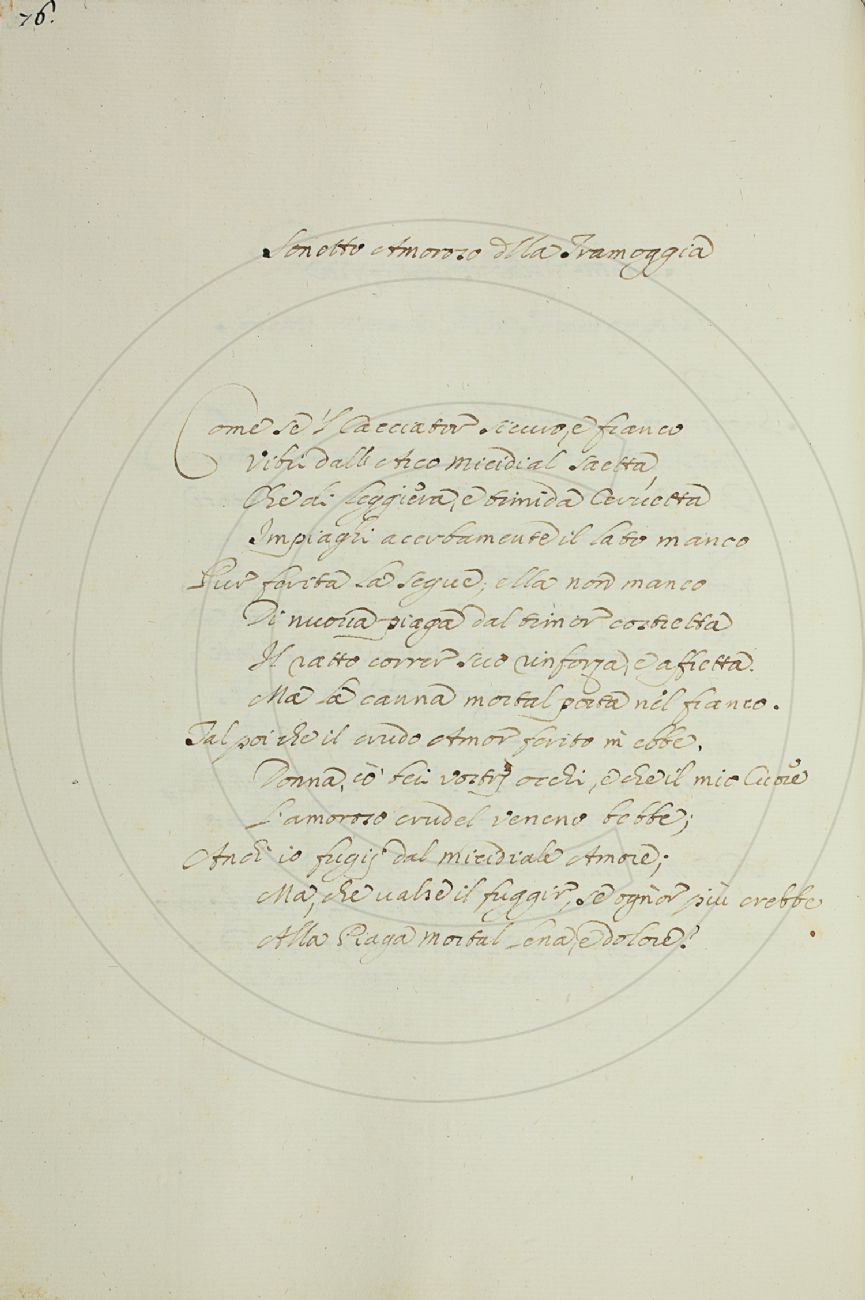 76.
Sonetto Amoroso dlla Tramoggia
Come se 'l Cacciator sicuro, e franco
Vibri dall'Arco micidial Saetta
Che di leggiera, e timida Cervietta
Impiaghi acerbamente il lato manco
Pur ferita la segue; ella non manco
Di nuova piaga dal timor costretta
Il ratto correr suo rinforza, e affretta.
Ma la canna mortal porta nel fianco.
Tal poi che il crudo Amor ferito m' ebbe,
Donna, co' bei vostri occhi, e che il mio Cuore
L'amoroso crudel veneno bebbe;
Anch' io fugij dal micidiale Amore;
Ma, che valse il fuggir, se ogn'or più crebbe
Alla Piaga mortal lena, e dolore?